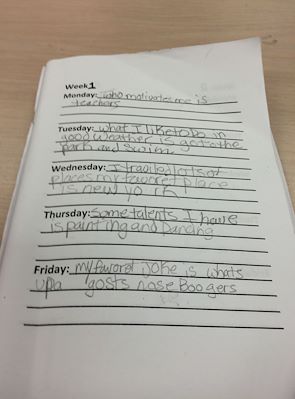 Week1
Monday: who motivates me is
teachers
Tuesday: what I like to do in
good weather is go to the
park and swim.
Wednesday: I travled lots of
places my favored place
is new york
Thursday: Some talents I have
is painting and Dancing
Friday: my favorot joke is whats
up a gosts nose Boogers